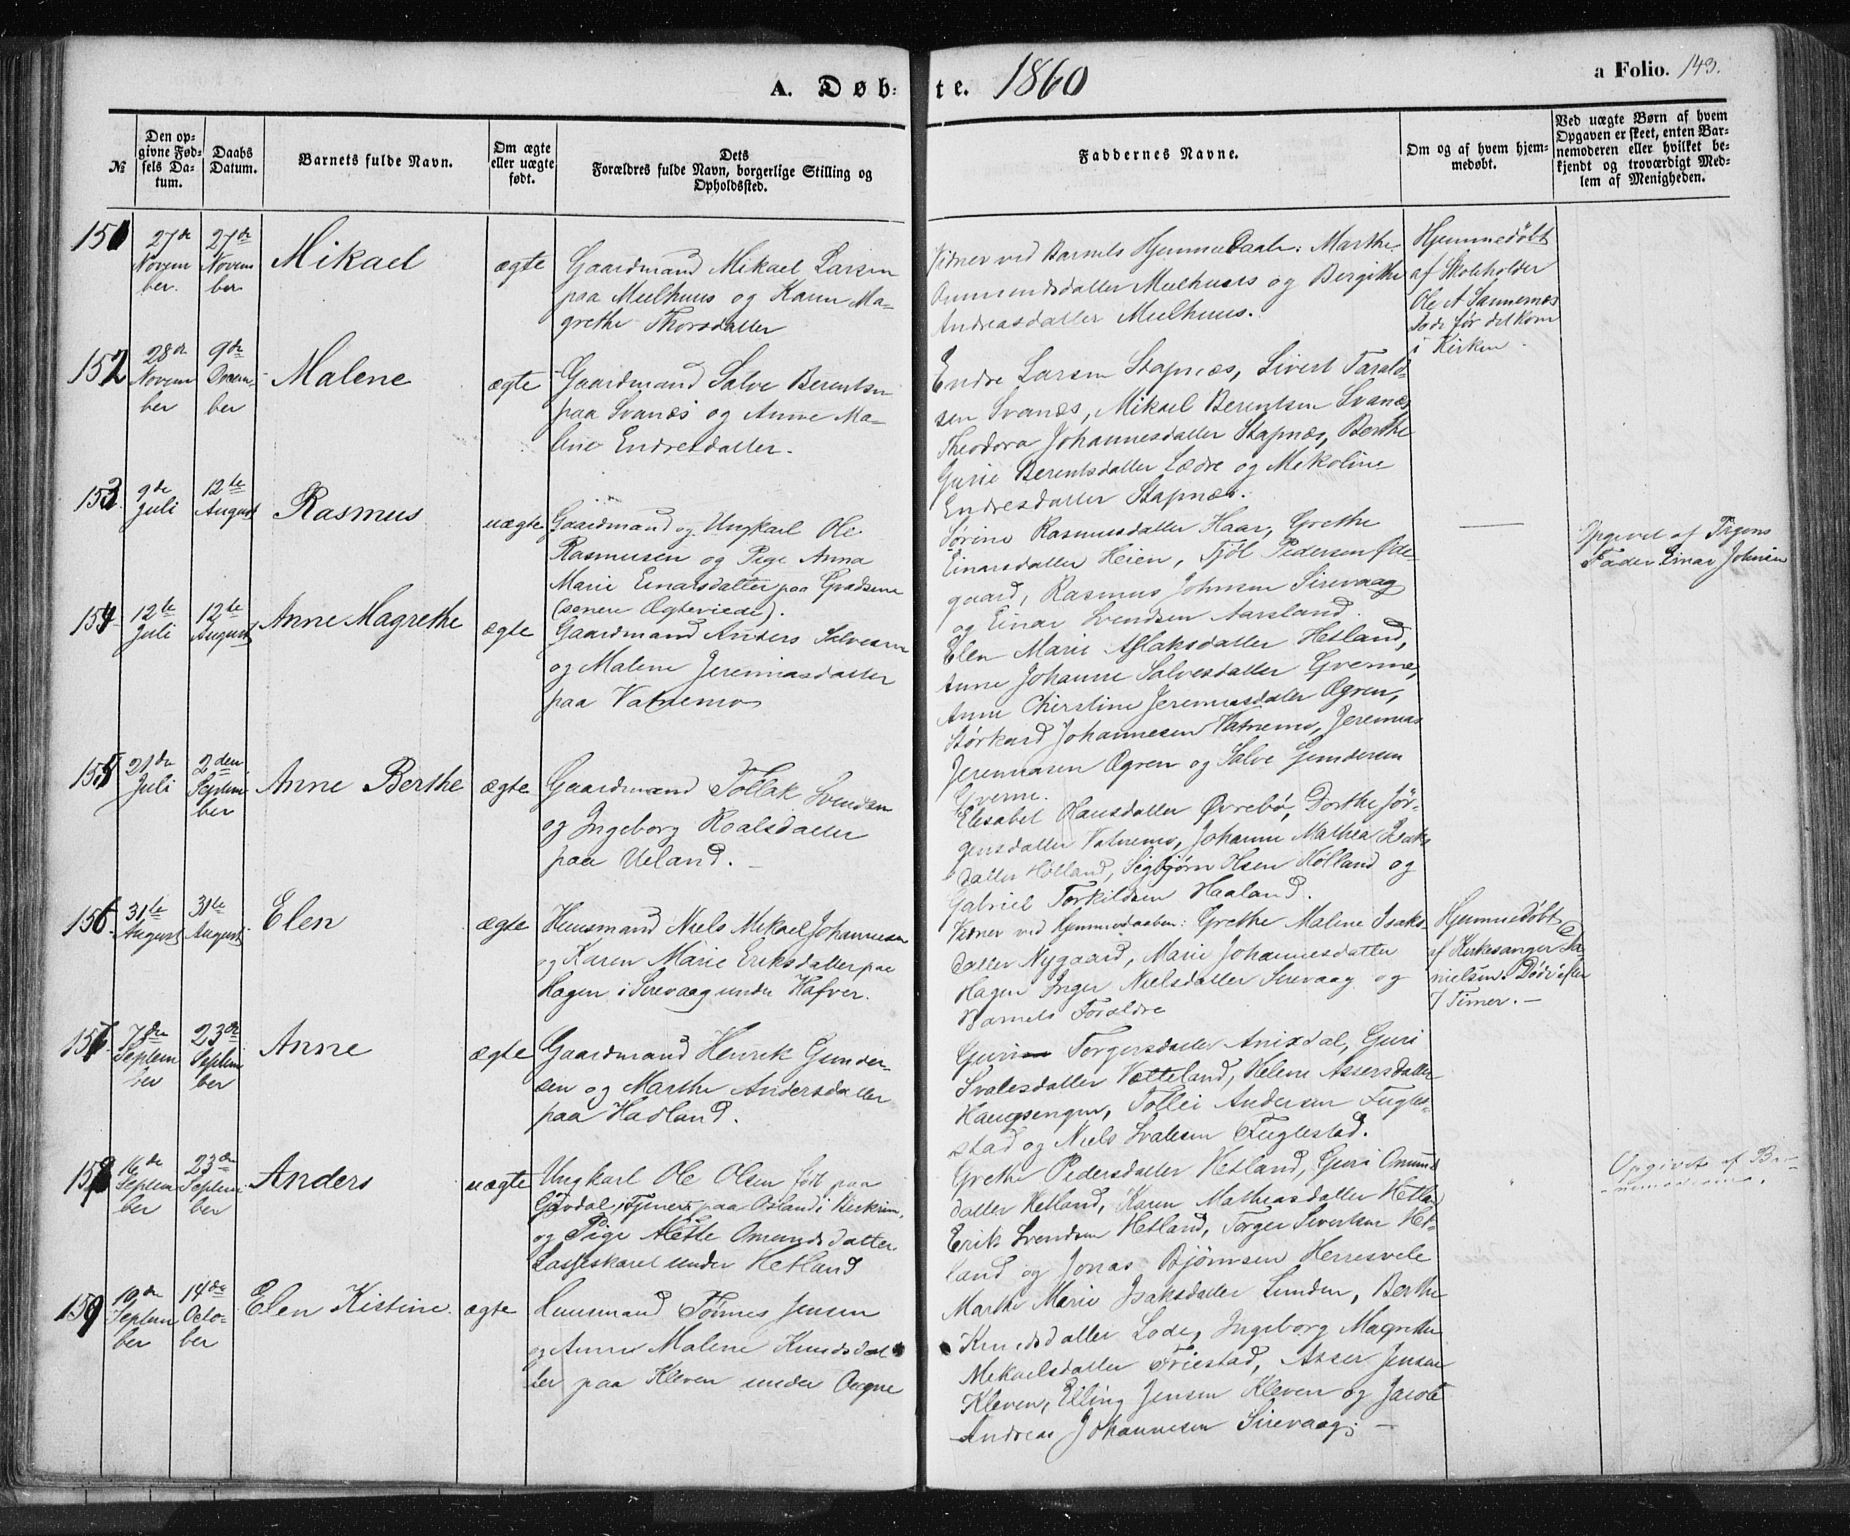 A. Døb: te. 1860
a Folio. 143.
№
Den opgivne Fødsels Datum.
Daabs Datum.
Barnets fulde Navn.
Om ægte eller uægte født.
Dets
Forældres fulde Navn, borgerlige Stilling og
Opholdssted.
Faddernes Navne.
Om og af hvem hjemmedøbt.
Ved uægte Børn af hvem
Opgaven er skeet, enten Barnemoderen eller hvilket bekjendt og troværdigt Medlem af Menigheden.
151
27de Novem ber.
27de Novem ber
Mikael
ægte
Gaardmand Mikael Larsen
paa Mulhuus og Karen Ma-
grethe Thorsdatter
Vidner ved Barnets Hjemmedaab: Marthe
Ommundsdatter Mulhuus og Bergithe
Andreasdatter Mulhuus.
Hjemmedøbt
af Skoleholder
Ole A Sannernes
Døde før det kom
i Kirken.
152
28de Novem ber
9de Decem- ber
Malene
ægte
Gaardmand Salve Berentsen
paa Svanæs og Anne Ma-
line Endresdatter.
Endre Larsen Stapnæs, Sivert Tarald-
sen Svanæs, Mikael Berentsen Svanæs
Theodora Johannesdatter Stapnæs, Berthe
Gurie Berentsdatter Lædre og Mikoline
Endresdatter Stapnæs.
153
9de Juli
12te August
Rasmus
uægte
Gaardmand og Ungkarl Ole
Rasmussen og Pige Anna
Marie Einarsdatter paa
(senere Ægteviede).
Sørine Rasmusdatter Haar, Grethe
Einarsdatter Heien, Tjøl Pedersen Øde-
gaard, Rasmus Johnsen Sirevaag
og Einar Svendsen Aarsland.
Opgivet af Pigens
Fader Einar Johnsen
154
12te Juli
12te August
Anne Magrethe
ægte
Gaardmand Anders Salvesen
og Malene Jeremiasdatter
paa Vatnemo
Elen Marie Aslaksdatter Hetland,
Anne Johanne Salvesdatter Gverme,
Anne Christine Jeremiasdatter Øgren,
Størkard Johannesen Vatnemo, Jeremias
Jeremiasen Øgren og Salve Gundersen
Gverme.
155
21de Juli
2den Septem ber
Anne Berthe
ægte
Gaardmand Tollak Svendsen
og Ingeborg Roalsdatter
paa Ueland.
Elisabet Hansdatter Øvrebø, Dorthe Jør-
gensdatter Vatnemo, Johanne Mathea
datter Hølland, Sigbjørn Olsen Hølland og
Gabriel Torkildsen Haaland.
156
31te August
31te August
Elen
ægte
Huusmand Niels Mikael Johannesen
og Karen Marie Eriksdatter paa
Hagen i Sirevaag under Hafver.
Vidner ved Hjemmedaaben: Grethe Malene Isaks
datter Nygaard, Marie Johannesdatter
Hagen Inger Nielsdatter Sirevaag og
Barnets Forældre
Hjemmedøbt
af Kirkesanger Da-
nielsen. Døde efter
7 Timer.
157
7de Septem ber
23de Septem ber
Anne
ægte
Gaardmand Henrik Gunder-
sen og Marthe Andersdatter
paa Hadland.
Guri Torgersdatter Anixdal, Guri
Svalesdatter Vætteland, Helene Assersdatter
Haugsengen, Tollei Andersen Fugles-
stad og Niels Svalesen Fuglestad.
158
16de Septem ber
23de Septem ber
Anders
uægte
Ungkarl Ole Olsen født paa
Gavdal, Tjener paa Osland i Birkrim,
og Pige Mette Omundsdatter
Lasseskaret under Hetland
Grethe Pedersdatter Hetland, Guri Omunds
datter Hetland, Karen Mathiasdatter Hetland
Erik Svendsen Hetland, Torger Sivertsen Het-
land og Jonas Bjørnsen Herresvele
Opgivet af Bar-
nemoderen.
159
19de Septem ber
14de Octo- ber
Elen Kistine
ægte
Huusmand Tønnes Jensen
og Anne Malene Knudsdat
ter paa Kleven under Oogne
Marthe Marie Isaksdatter Lunden, Berthe
Knudsdatter Lode, Ingeborg Magrethe
Mikaelsdatter Friestad, Asser Jensen
Kleven, Elling Jensen Kleven og Jacob
Andreas Johannesen Sirevaag.